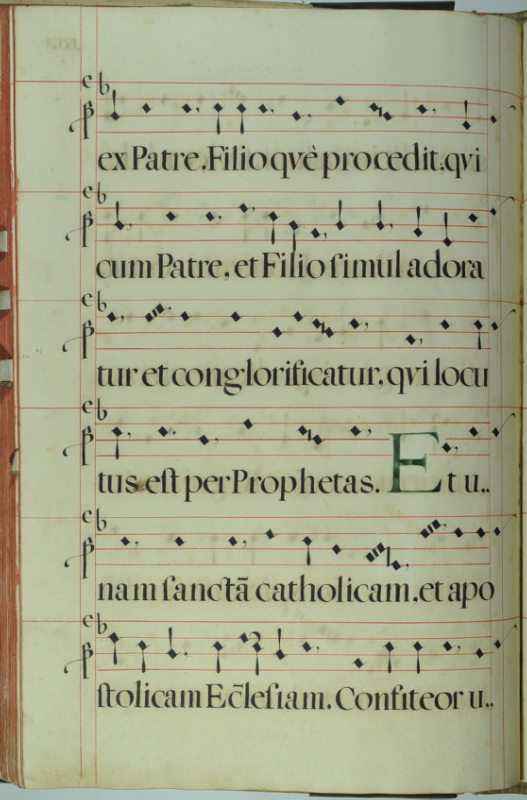 ex Patre. Filioqvè procedit: qvi
cum Patre, et Filio ſimul adora
tur et conglorificatur, qvi locu
tus eſt per Prophetas. Et u..
nam ſanctā catholicam, et apo
ſtolicam Ec̄leſiam. Confiteor u..